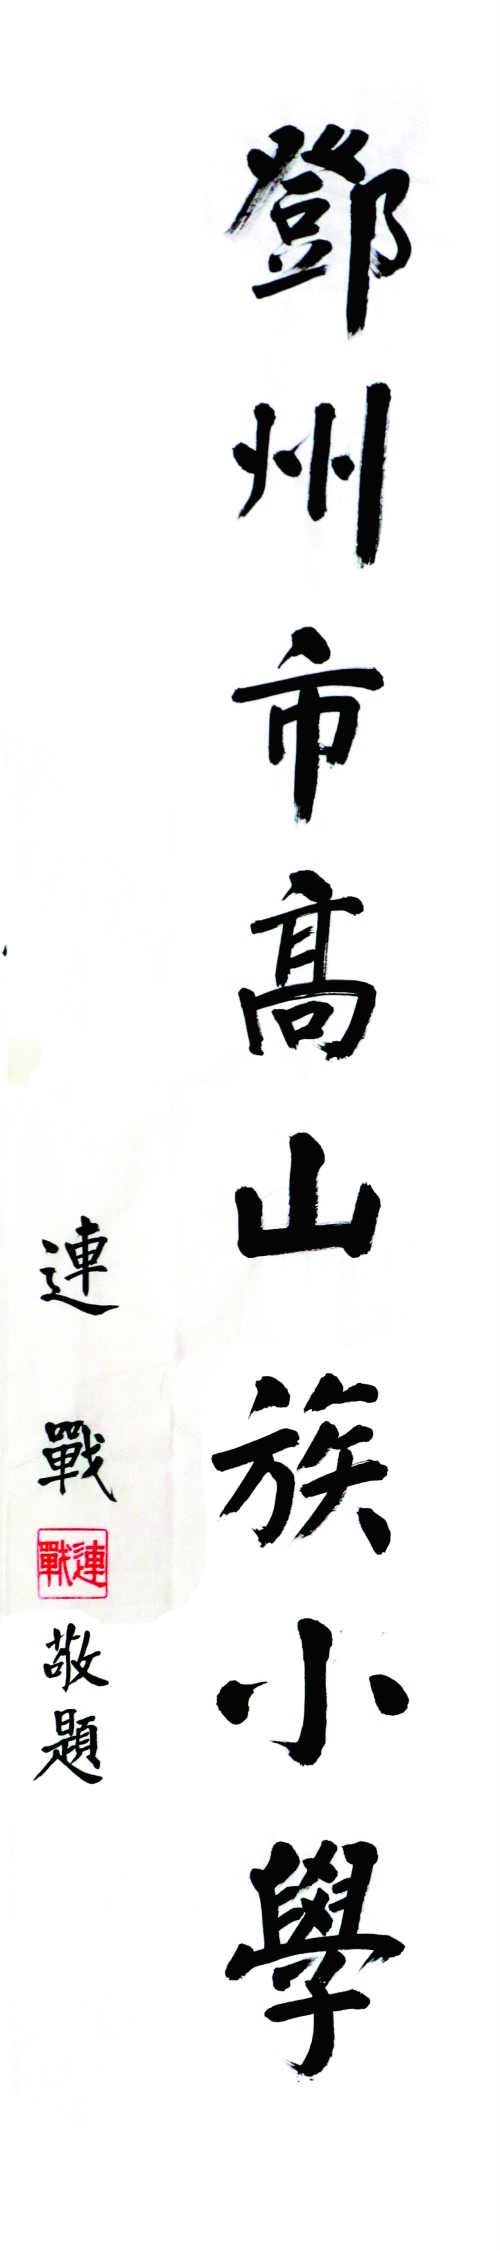 鄧州市高山族小學
連戰
連戰
敬題